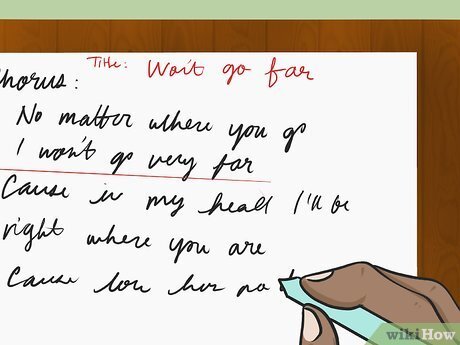 Title: Won't go far
horus:
No matter where you go
I won't go very far
Cause in my head I'll be
right where you are
Cause love has no
wikiHow